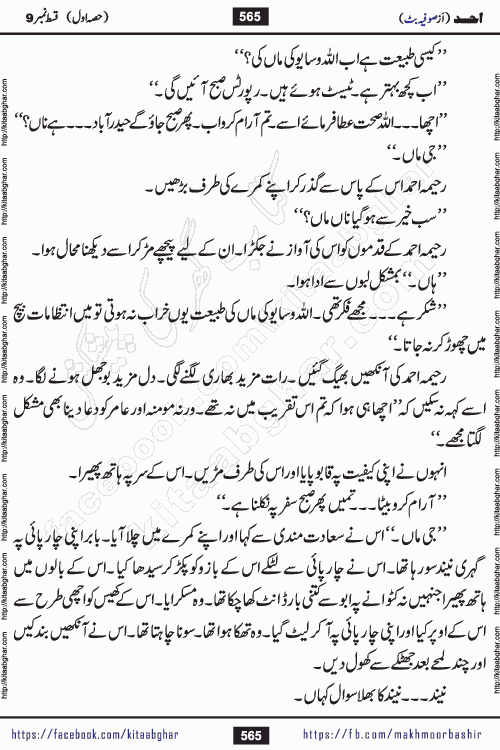 احد (از صوفیہ بٹ) 565 (حصہ اول) قسط نمبر 9
’’کیسی طبیعت ہے اب اللہ وسایو کی ماں کی؟‘‘
’’اب کچھ بہتر ہے۔ ٹیسٹ ہوئے ہیں۔ رپورٹس صبح آئیں گی۔‘‘
’’اچھا۔۔۔ اللہ صحت عطا فرمائے اسے۔ تم آرام کرو اب۔ پھر صبح جاؤ گے حیدرآباد۔۔۔ ہے ناں؟‘‘
’’جی ماں۔‘‘
رحیمہ احمد اس کے پاس سے گذر کر اپنے کمرے کی طرف بڑھیں۔
’’سب خیر سے ہو گیا ناں ماں؟‘‘
رحیمہ احمد کے قدموں کو اس کی آواز نے جکڑا۔ ان کے لیے پیچھے مڑ کر اسے دیکھنا محال ہوا۔
’’ہاں۔‘‘ بمشکل لبوں سے ادا ہوا۔
’’شکر ہے۔۔۔ مجھے فکر تھی۔ اللہ وسایو کی ماں کی طبیعت یوں خراب نہ ہوتی تو میں انتظامات بیچ
میں چھوڑ کر نہ جاتا۔‘‘
رحیمہ احمد کی آنکھیں بھیگ گئیں۔ رات مزید بھاری لگنے لگی۔ دل مزید بوجھل ہونے لگا۔ وہ
اسے کہہ نہ سکیں کہ ’’اچھا ہی ہوا کہ تم اس تقریب میں نہ تھے۔ ورنہ مومنہ اور عامر کو دعا دینا بھی مشکل
لگتا مجھے۔‘‘
انہوں نے اپنی کیفیت پہ قابو پایا اور اس کی طرف مڑیں۔ اس کے سر پہ ہاتھ پھیرا۔
’’آرام کرو بیٹا۔۔۔ تمہیں پھر صبح سفر پہ نکلنا ہے۔‘‘
’’جی ماں۔‘‘ اس نے سعادت مندی سے کہا اور اپنے کمرے میں چلا آیا۔ بابر اپنی چارپائی پہ
گہری نیند سو رہا تھا۔ اس نے چارپائی سے لٹکے اس کے بازو کو پکڑ کر سیدھا کیا۔ اس کے بالوں میں
ہاتھ پھیرا جنہیں نہ کٹوانے پہ ابو سے کتنی بار ڈانٹ کھا چکا تھا۔ وہ مسکرایا۔ اس کے کھیس کو اچھی طرح سے
اس کے اوپر کیا اور اپنی چارپائی پہ آ کر لیٹ گیا۔ وہ تھکا ہوا تھا۔ سونا چاہتا تھا۔ اس نے آنکھیں بند کیں
اور چند لمحے بعد جھٹکے سے کھول دیں۔
نیند۔۔۔ نیند کا بھلا سوال کہاں۔
https://facebook.com/kitaabghar 565 https://fb.com/makhmoorbashir
http://kitaabghar.com
کتاب گھر کی پیشکش
kitaabghar.com
facebook.com/kitaabghar